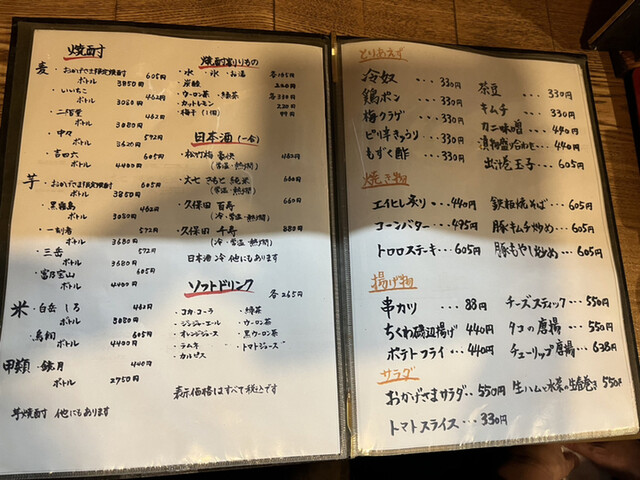 焼酎
麦・おかげさま限定焼酎 605円
ボトル 3850円
・いいちこ 462円
ボトル 3080円
・二階堂 462円
ボトル 3080円
・中々 572円
ボトル 3630円
・吉四六 605円
ボトル 4400円
芋・おかげさま限定焼酎 605円
ボトル 3850円
・黒霧島 462円
ボトル 3080円
・一刻者 572円
ボトル 3680円
・三岳 572円
ボトル 3680円
・富乃宝山 605円
ボトル 4400円
米・白岳 しろ 462円
ボトル 3080円
・鳥飼 605円
ボトル 4400円
甲類・鏡月 440円
ボトル 2750円
芋焼酎 他にもあります
焼酎割りもの
・水 ・氷・お湯 各165円
・炭酸 220円
・ウーロン茶 ・緑茶 各220円
・カットレモン 220円
・梅干(1個) 99円
日本酒(一合)
・松竹梅 豪快 460円
(常温・熱燗)
・大七 きもと 純米 660円
(常温・熱燗)
・久保田 百寿 660円
(冷・常温・熱燗)
・久保田 千寿 880円
(冷・常温・熱燗)
日本酒 冷 他にもあります
ソフトドリンク 各265円
・コカ・コーラ ・緑茶
・ジンジャーエール ・ウーロン茶
・オレンジジュース ・黒ウーロン茶
・ラムネ ・トマトジュース
・カルピス
表示価格はすべて税込です
とりあえず
冷奴 ・・・330円
鶏ポン ・・・330円
梅クラゲ ・・・330円
ピリ辛きゅうり ・・330円
もずく酢 ・・・330円
茶豆 ・・・330円
キムチ ・・・330円
カニ味噌 ・・・440円
漬物盛り合わせ・・440円
出汁巻玉子・・605円
焼き物
エイヒレ炙り・・・440円 鉄板焼そば・・605円
コーンバター・・・495円 豚キムチ炒め・・605円
トロロステーキ・・605円 豚もやし炒め・・605円
揚げ物
串カツ ・・・ 88円 チーズスティック・・550円
ちくわ磯辺揚げ 440円 タコの唐揚・・・550円
ポテトフライ・・・440円 チューリップ唐揚・・638円
サラダ
おかげさまサラダ・・550円 生ハムと水菜の生春巻き 550円
トマトスライス・・・330円